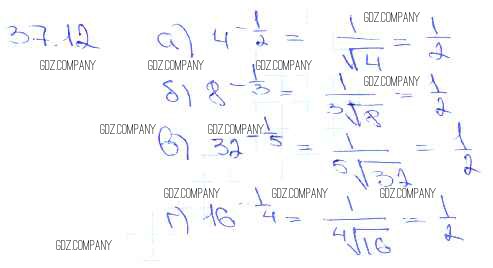 37.12 а) 4^{-\frac{1}{2}} = \frac{1}{\sqrt{4}} = \frac{1}{2}
б) 8^{-\frac{1}{3}} = \frac{1}{\sqrt[3]{8}} = \frac{1}{2}
в) 32^{-\frac{1}{5}} = \frac{1}{\sqrt[5]{32}} = \frac{1}{2}
г) 16^{-\frac{1}{4}} = \frac{1}{\sqrt[4]{16}} = \frac{1}{2}
GDZ.COMPANY
GDZ.COMPANY GDZ.COMPANY GDZ.COMPANY
GDZ.COMPANY GDZ.COMPANY GDZ.COMPANY
GDZ.COMPANY GDZ.COMPANY GDZ.COMPANY
GDZ.COMPANY GDZ.COMPANY GDZ.COMPANY
GDZ.COMPANY